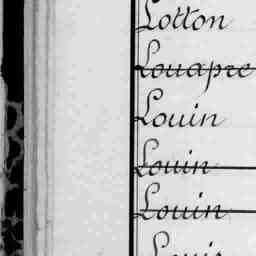 Lotton
Louapre
Louin
Louin
Louin